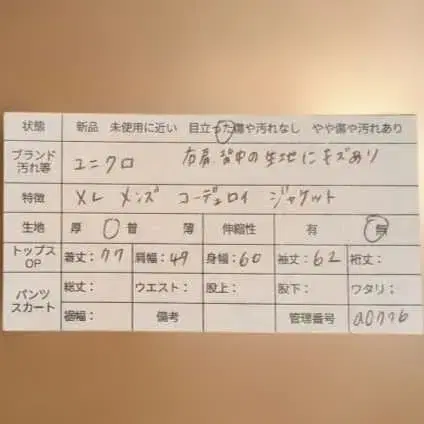 状態 新品 未使用に近い 目立った傷や汚れなし やや傷や汚れあり
ブランド 汚れ等 ユニクロ 右肩、背中の生地にキズあり
特徴 XL メンズ コーデュロイ ジャケット
生地 厚 普 薄 伸縮性 有 無
トップス OP 着丈：77 肩幅：49 身幅：60 袖丈：62 裄丈：
パンツ スカート 総丈： ウエスト： 股上： 股下： ワタリ：
裾幅： 備考 管理番号 a0776